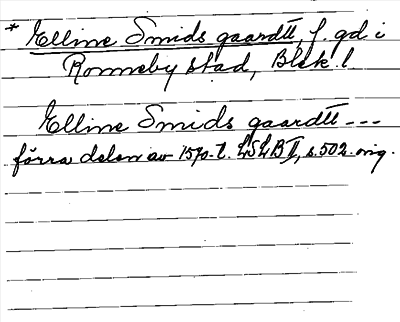 * Elline Smids gaardtt, f. gd i
Ronneby stad, Blek. l.
Elline Smids gaardtt ---
förra delen av 1570-t. LSLB II, s. 502. orig.